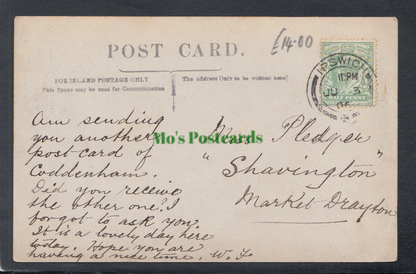 £14.00
POST CARD.
FOR INLAND POSTAGE ONLY
This Space may be used for Communication
The address Only to be written here
IPSWICH
11.PM
JU 3
HALFPENNY
Mo's Postcards
Am sending
you another
postcard of
Coddenham.
Did you receive
the other one? I
forgot to ask you
It is a lovely day here
today. Hope you are
having a nice time. W. F
Mrs Pledger
"Shavington"
Market Drayton